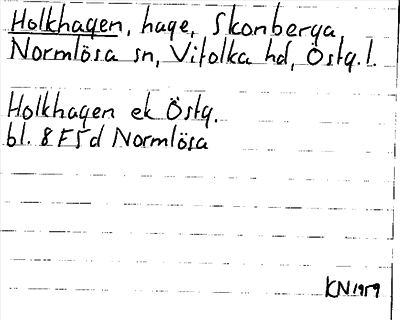 Holkhagen, hage, Skonberga
Normlösa sn, Vifolka hd, Östg. l.
Holkhagen ek Östg.
bl. 8 F 5 d Normlösa
KN 1959